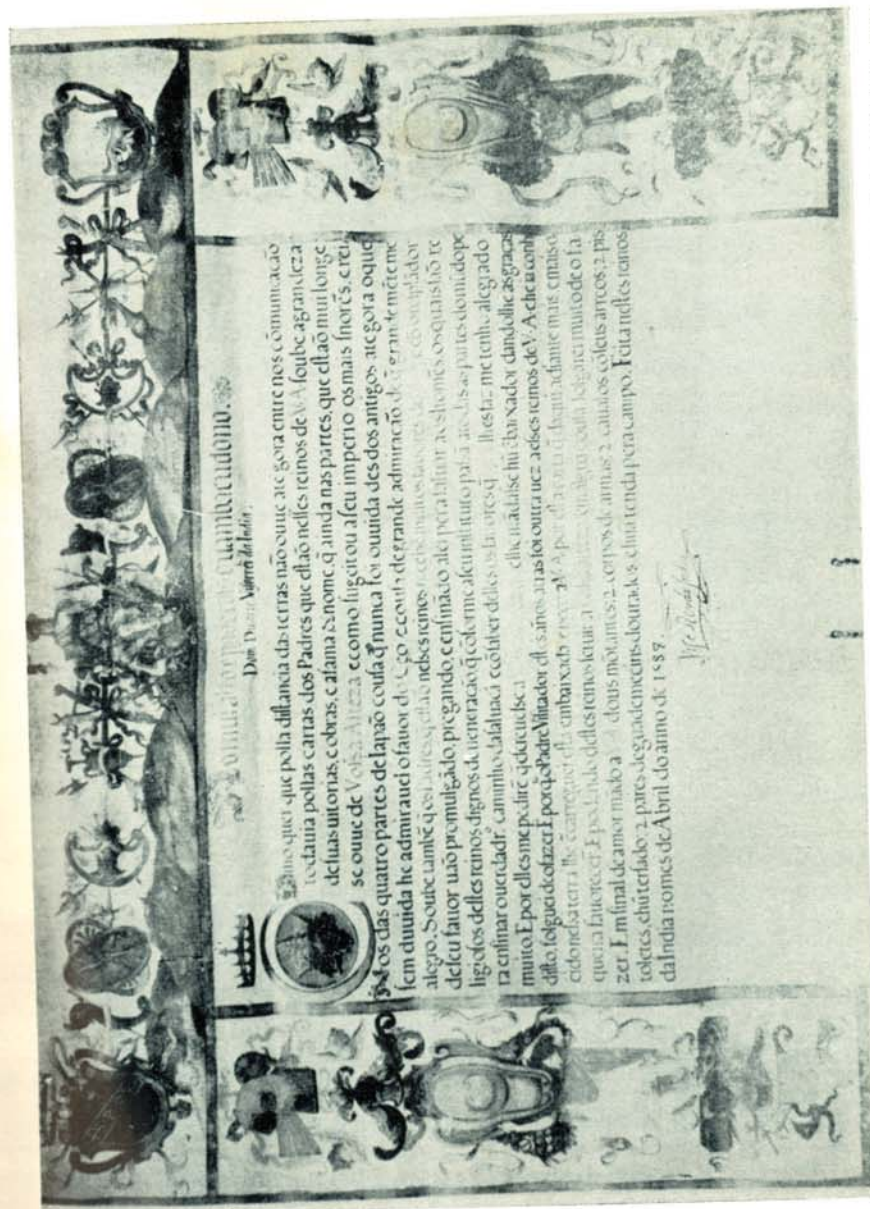 quambacudono.
Dom Duarte Visorei da India
que polla distancia das terras não ouue ategora entre nos cõmunicação
todauia pollas cartas dos Padres que estaõ nestes reinos de V.A. soube a grandeza
de suas uitorias, e obras, e a fama & nome, q̃ ainda nas partes, que estaõ mui longe
se ouue de Vossa Alteza e como sugeitou a seu imperio os mais snorẽs, e reis
das quatro partes de Iapaõ cousa q̃ nunca foi ouuida des dos antigos ategora o que
sem duuida he admirauel o fauor do Ceo e cousa de grande admiração de q̃ grandemẽte me
alegro. Soube tambẽ q̃ os Padres q̃ estaõ nesses reinos
de seu fauor uaõ promulgãdo, pregando, e ensinãdo a lei pera saluar aos homẽs, os quais são re
ligiosos destes reinos dignos de ueneração q̃ cõforme a seu instituto passã a todas as partes do mũdo pe
ra ensinar o uerdadrº caminho da saluaçã e cõ saber destes os fauores q̃ lhes faz me tenho alegrado
muito. E por elles me pedirẽ q̃ screuesse a e lhe mãdasse hũ ẽbaxador dandolhe as graças
disto, folguei de o fazer. E porq̃ o Padre Visitador estes años atras foi outra uez a esses reinos de V.A. e he ia conh
ecido nesta terra lhe ẽcarreguei esta embaixada, e peço a V.A. por esta carta q̃ daqui adiante mais e mais o
queira fauorecer. E podendo destes reinos seruir a folgarei muito de o fa
zer. E m sinal de amor mãdo a deus mõtantes, 2. corpos de armas, 2. cauallos cõ seus arreos, 2. pis
toletes, e hũ tersado, 2. pares de guademecins dourados, e hũa tenda pera campo. Feita nestes reinos
da India no mes de Abril do anno de 1587.